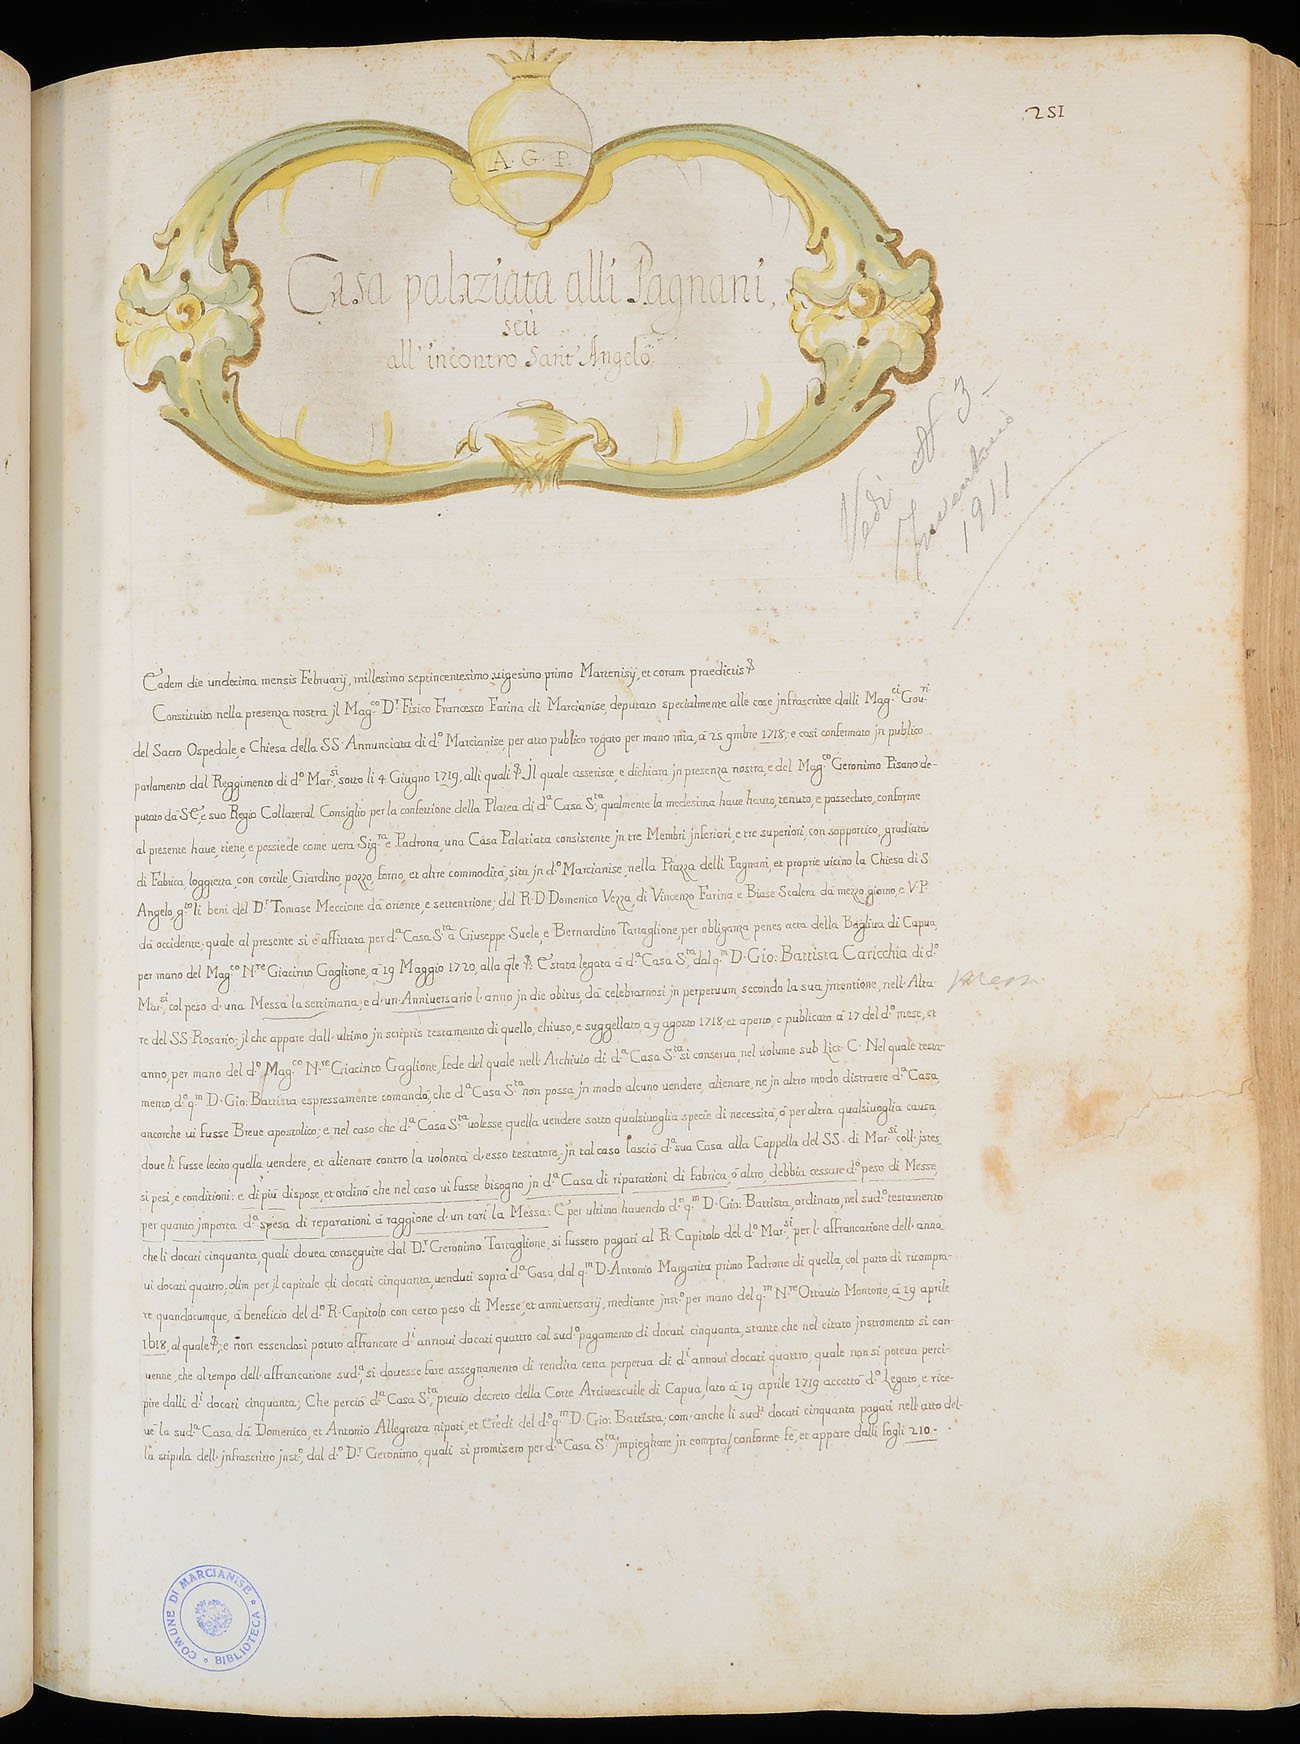 251
A. G. P.
Casa palaziata alli Pagnani,
seù
all' incontro Sant' Angelo.
Vedi N 3
Inventario
1911
Eadem die undecima mensis Februarij, millesimo septincentesimo vigesimo primo Martenisij, et coram praedictis
Constituito nella presenza nostra jl Mag.co D.r Fisico Francesco Farina di Marcianise, deputato specialmente alle cose jnfrascritte dalli Mag.ci Gov.ri
del Sacro Ospedale, e Chiesa della SS. Annunciata di d.o Marcianise, per atto publico rogato per mano mia, à 25 9mbre 1718; e così confermato jn publico
parlamento dal Reggimento di d.o Mar.si, sotto li 4 Giugno 1719, alli quali. Jl quale asserisce, e dichiara jn presenza nostra, e del Mag.co Geronimo Pisano de-
putato dà S.E., e suo Regio Collateral Consiglio per la confettione della Platea di d.a Casa S.ta, qualmente la medesima have hauto, tenuto, e posseduto, conforme
al presente have, tiene, e possiede come vera Sig.ra e Padrona, una Casa Palatiata consistente jn tre Membri jnferiori, e tre superiori, con supportico, gradiata
di Fabrica, loggietta, con cortile, Giardino, pozzo, forno, et altre commodità, sita jn d.o Marcianise, nella Piazza delli Pagnani, et proprie vicino la Chiesa di S.
Angelo, g.to li beni del D.r Tomase Meccione dà oriente, e settentrione; del R.D. Domenico Vezza, di Vincenzo Farina e Biase Scalera dà mezzo giorno, e V.P.
dà occidente; quale al presente si è affittata per d.a Casa S.ta à Giuseppe Suele, e Bernardino Tartaglione, per obliganza penes acta della Bagliva di Capua,
per mano del Mag.co N.re Giacinto Gaglione, à 19 Maggio 1720, alla q.le. E' stata legata à d.a Casa S.ta, dal q.m D. Gio: Battista Caricchia di d.o
Mar.si, col peso d'una Messa la settimana, e d'un Anniversario l'anno jn die obitus, dà celebrarnosi jn perpetuum, secondo la sua jntentione, nell'Alta-
re del SS. Rosario; jl che appare dall'ultimo jn scriptis testamento di quello, chiuso, e suggellato, à 9 agosto 1718; et aperto, e publicato à 17 del d.o mese, et
anno, per mano del d.o Mag.co N.re Giacinto Gaglione, fede del quale nell'Archivio di d.a Casa S.ta si conserva, nel volume sub Litt. C. Nel quale testa-
mento, d.o q.m D. Gio: Battista espressamente comandà, che d.a Casa S.ta non possa jn modo alcuno vendere, alienare, ne jn altro modo distraere d.a Casa,
ancorche vi fusse Breve apostolico; e nel caso che d.a Casa S.ta volesse quella vendere sotto qualsivoglia specie di necessità, ò per altra qualsivoglia causa
dove li fusse lecito quella vendere, et alienare contro la volontà d'esso testatore, jn tal caso lasciò d.a sua Casa alla Cappella del SS. di Mar.si coll'jstes-
si pesi, e conditioni: e di più dispose, et ordinò che nel caso vi fusse bisogno jn d.a Casa di riparationi di fabrica, ò altro, debbia cessare d.o peso di Messe,
per quanto jmporta d.a spesa di reparationi à raggione d'un tarì la Messa: E per ultimo havendo d.o q.m D. Gio: Battista, ordinato, nel sud.o testamento
che li docati cinquanta, quali dovea conseguire dal D.r Geronimo Tartaglione, si fussero pagati al R. Capitolo del d.o Mar.si, per l'affrancatione dell'anno
vi docati quattro, olim per jl capitale di docati cinquanta, venduti sopra d.a Casa, dal q.m D. Antonio Margarita primo Padrone di quella, col patto di ricompra-
re quandocumque, à beneficio del d.o R. Capitolo con certo peso di Messe, et anniversarij, mediante jnst.o per mano del q.m N.re Ottavio Montone, à 19 aprile
1618, al quale; e non essendosi potuto affrancare d.i annovi docati quattro col sud.o pagamento di docati cinquanta, stante che nel citato jnstromento si con-
venne, che al tempo dell'affrancatione sud.a, si dovesse fare assegnamento di rendita certa perpetua di d.i annovi docati quattro, quale non si poteva perci-
pire dalli d.i docati cinquanta; Che perciò d.a Casa S.ta, previo decreto della Corte Arcivescuile di Capua, lato à 19 aprile 1719 accettò d.o Legato, e rice-
vè la sud.a Casa dà Domenico, et Antonio Allegretta nipoti, et Eredi del d.o q.m D. Gio: Battista; com'anche li sud.i docati cinquanta pagati nell'atto del-
la stipula dell'jnfrascritto jnst.o, dal d.o D.r Geronimo, quali si promisero per d.a Casa S.ta jmpieghare jn compra, conforme fè, et appare dalli fogli 210.
COMUNE DI MARCIANISE
BIBLIOTECA